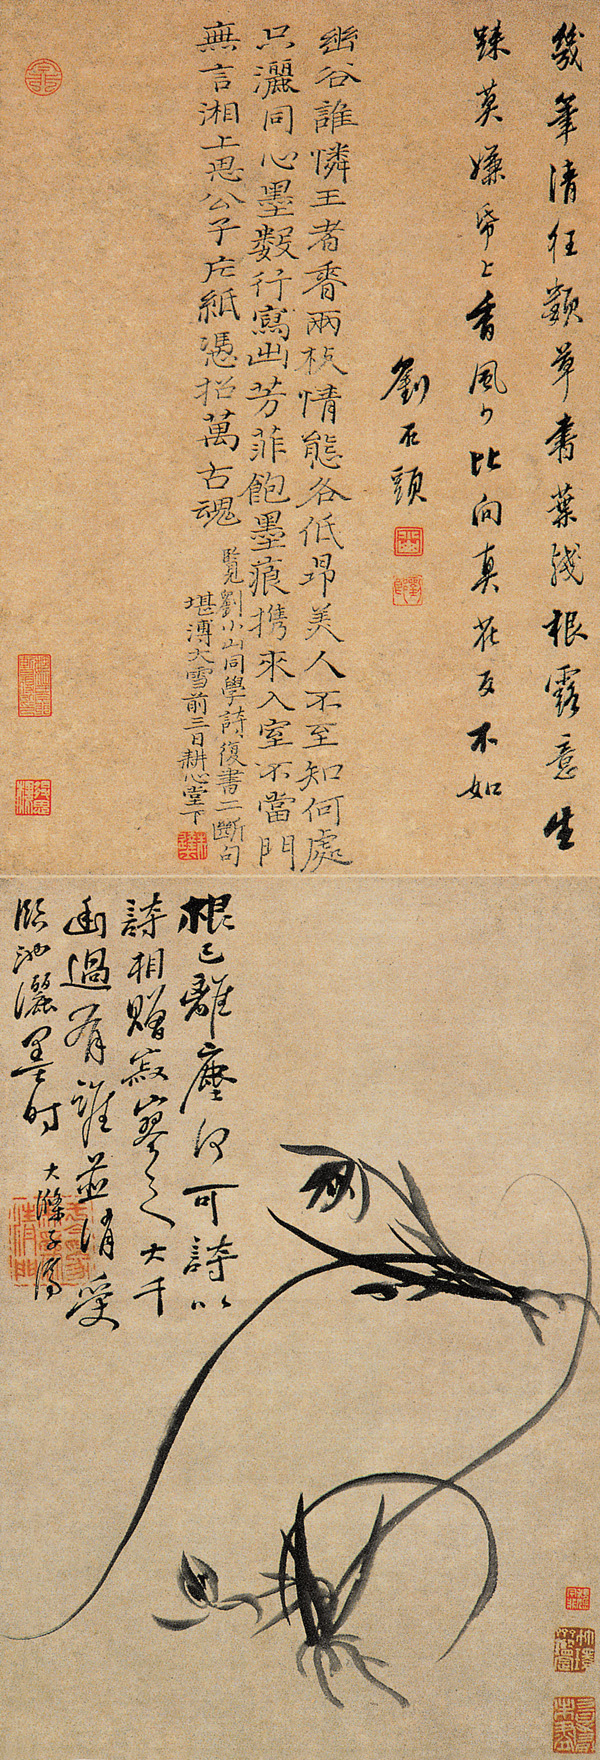 幾筆清狂類草書葉殘根露意生
疎莫嫌帋上香風少比向真花反不如
劉石頭
幽谷誰憐王者香兩枝情態各低昂美人不至知何處
只灑同心墨數行寫出芳菲飽墨痕携來入室不當門
無言湘上思公子片紙憑招萬古魂
覽劉小山同學詩復書二斷句
堪溥大雪前三日耕心堂下
根已離塵何可詩以
詩相贈寂寥之大千
過有誰並消受
臨池灑墨時
大滌子濟